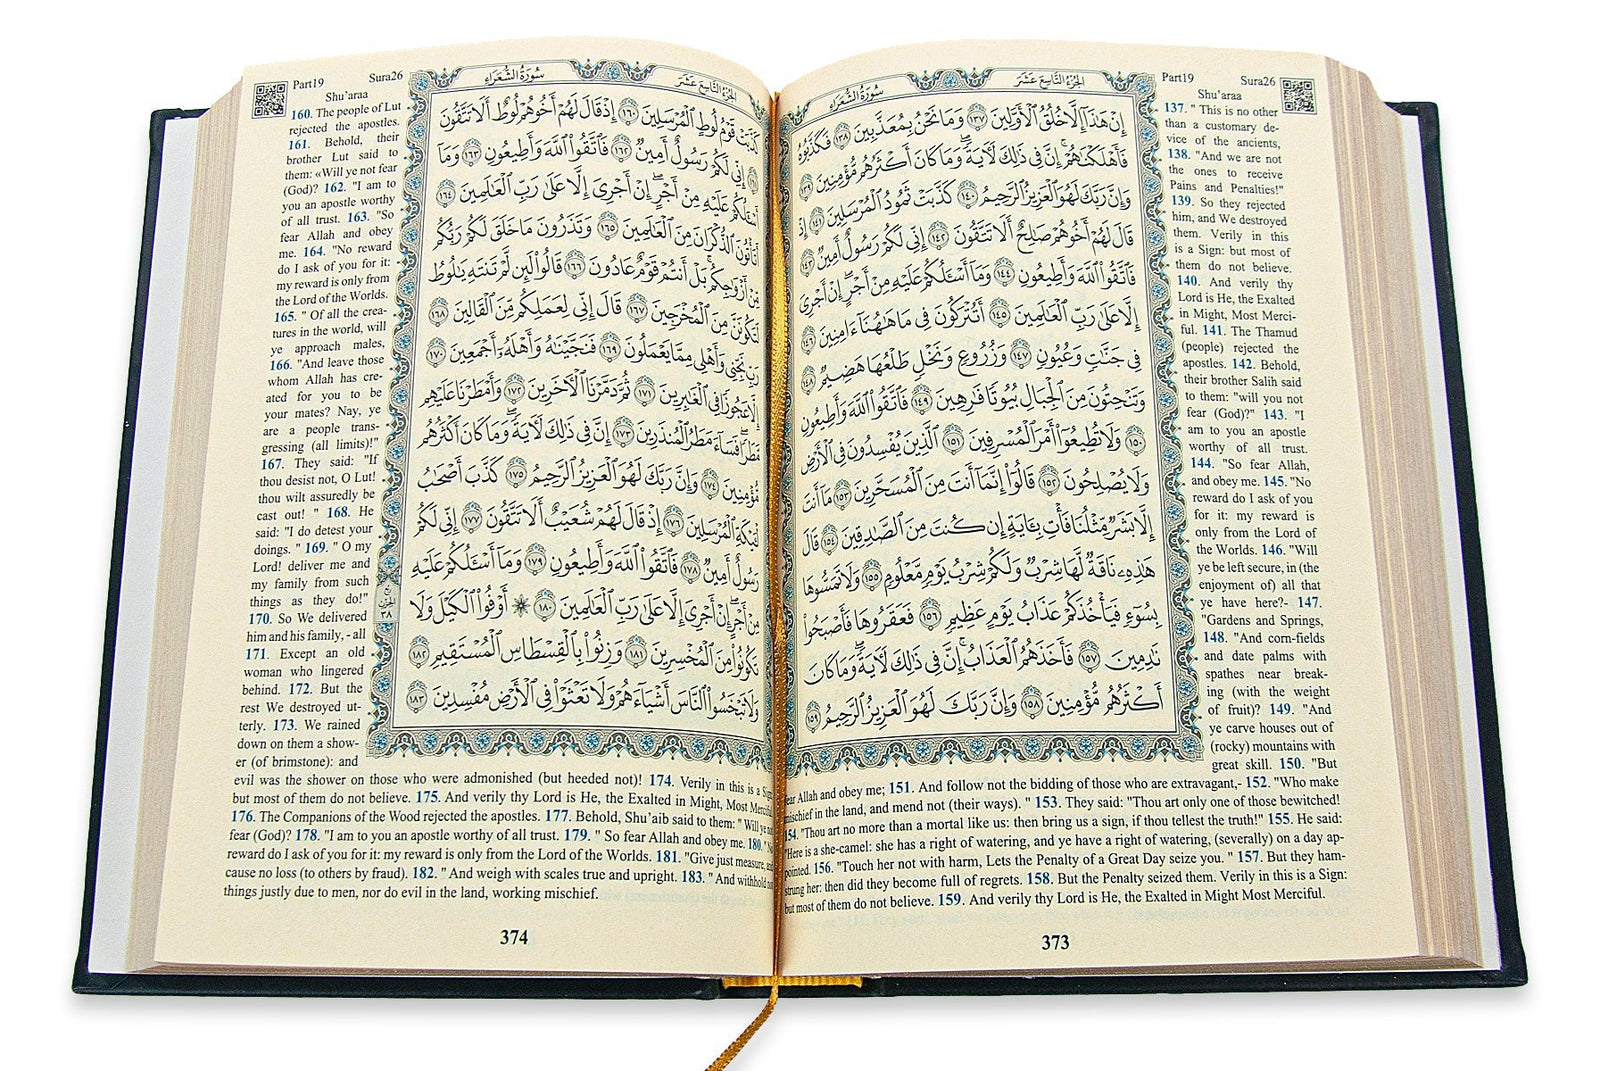 الجُزْءُ التَّاسِعَ عَشَرَ
سُورَةُ الشُّعَرَاءِ
إِنْ هَٰذَآ إِلَّا خُلُقُ ٱلْأَوَّلِينَ ١٣٧ وَمَا نَحْنُ بِمُعَذَّبِينَ ١٣٨ فَكَذَّبُوهُ
فَأَهْلَكْنَٰهُمْ ۗ إِنَّ فِى ذَٰلِكَ لَءَايَةً ۖ وَمَا كَانَ أَكْثَرُهُم مُّؤْمِنِينَ ١٣٩
وَإِنَّ رَبَّكَ لَهُوَ ٱلْعَزِيزُ ٱلرَّحِيمُ ١٤٠ كَذَّبَتْ ثَمُودُ ٱلْمُرْسَلِينَ ١٤١ إِذْ
قَالَ لَهُمْ أَخُوهُمْ صَٰلِحٌ أَلَا تَتَّقُونَ ١٤٢ إِنِّى لَكُمْ رَسُولٌ أَمِينٌ ١٤٣
فَٱتَّقُوا۟ ٱللَّهَ وَأَطِيعُونِ ١٤٤ وَمَآ أَسْـَٔلُكُمْ عَلَيْهِ مِنْ أَجْرٍ ۖ إِنْ أَجْرِىَ
إِلَّا عَلَىٰ رَبِّ ٱلْعَٰلَمِينَ ١٤٥ أَتُتْرَكُونَ فِى مَا هَٰهُنَآ ءَامِنِينَ ١٤٦
فِى جَنَّٰتٍ وَعُيُونٍ ١٤٧ وَزُرُوعٍ وَنَخْلٍ طَلْعُهَا هَضِيمٌ ١٤٨
وَتَنْحِتُونَ مِنَ ٱلْجِبَالِ بُيُوتًا فَٰرِهِينَ ١٤٩ فَٱتَّقُوا۟ ٱللَّهَ وَأَطِيعُونِ
١٥٠ وَلَا تُطِيعُوٓا۟ أَمْرَ ٱلْمُسْرِفِينَ ١٥١ ٱلَّذِينَ يُفْسِدُونَ فِى ٱلْأَرْضِ
وَلَا يُصْلِحُونَ ١٥٢ قَالُوٓا۟ إِنَّمَآ أَنتَ مِنَ ٱلْمُسَحَّرِينَ ١٥٣ مَآ أَنتَ
إِلَّا بَشَرٌ مِّثْلُنَا فَأْتِ بِـَٔايَةٍ إِن كُنتَ مِنَ ٱلصَّٰدِقِينَ ١٥٤ قَالَ
هَٰذِهِۦ نَاقَةٌ لَّهَا شِرْبٌ وَلَكُمْ شِرْبُ يَوْمٍ مَّعْلُومٍ ١٥٥ وَلَا تَمَسُّوهَا
بِسُوٓءٍ فَيَأْخُذَكُمْ عَذَابُ يَوْمٍ عَظِيمٍ ١٥٦ فَعَقَرُوهَا فَأَصْبَحُوا۟
نَٰدِمِينَ ١٥٧ فَأَخَذَهُمُ ٱلْعَذَابُ ۗ إِنَّ فِى ذَٰلِكَ لَءَايَةً ۖ وَمَا كَانَ
أَكْثَرُهُم مُّؤْمِنِينَ ١٥٨ وَإِنَّ رَبَّكَ لَهُوَ ٱلْعَزِيزُ ٱلرَّحِيمُ ١٥٩
Part19 Sura26
Shu’araa
137. " This is no other
than a customary de-
vice of the ancients,
138. "And we are not
the ones to receive
Pains and Penalties!"
139. So they rejected
him, and We destroyed
them. Verily in this
is a Sign: but most of
them do not believe.
140. And verily thy
Lord is He, the Exalted
in Might, Most Merci-
ful. 141. The Thamud
(people) rejected the
apostles. 142. Behold,
their brother Salih said
to them: "will you not
fear (God)?" 143. "I
am to you an apostle
worthy of all trust.
144. "So fear Allah,
and obey me. 145. "No
reward do I ask of you
for it: my reward is
only from the Lord of
the Worlds. 146. "Will
ye be left secure, in (the
enjoyment of) all that
ye have here?- 147.
"Gardens and Springs,
148. "And corn-fields
and date palms with
spathes near break-
ing (with the weight
of fruit)? 149. "And
ye carve houses out of
(rocky) mountains with
great skill. 150. "But
fear Allah and obey me; 151. And follow not the bidding of those who are extravagant,- 152. "Who make
mischief in the land, and mend not (their ways). " 153. They said: "Thou art only one of those bewitched!
154. "Thou art no more than a mortal like us: then bring us a sign, if thou tellest the truth!" 155. He said:
"Here is a she-camel: she has a right of watering, and ye have a right of watering, (severally) on a day ap-
pointed. 156. "Touch her not with harm, Lets the Penalty of a Great Day seize you. " 157. But they ham-
strung her: then did they become full of regrets. 158. But the Penalty seized them. Verily in this is a Sign:
but most of them do not believe. 159. And verily thy Lord is He, the Exalted in Might Most Merciful.
373
الجُزْءُ التَّاسِعَ عَشَرَ
سُورَةُ الشُّعَرَاءِ
كَذَّبَتْ قَوْمُ لُوطٍ ٱلْمُرْسَلِينَ ١٦٠ إِذْ قَالَ لَهُمْ أَخُوهُمْ لُوطٌ أَلَا تَتَّقُونَ
١٦١ إِنِّى لَكُمْ رَسُولٌ أَمِينٌ ١٦٢ فَٱتَّقُوا۟ ٱللَّهَ وَأَطِيعُونِ ١٦٣ وَمَآ
أَسْـَٔلُكُمْ عَلَيْهِ مِنْ أَجْرٍ ۖ إِنْ أَجْرِىَ إِلَّا عَلَىٰ رَبِّ ٱلْعَٰلَمِينَ ١٦٤
أَتَأْتُونَ ٱلذُّكْرَانَ مِنَ ٱلْعَٰلَمِينَ ١٦٥ وَتَذَرُونَ مَا خَلَقَ لَكُمْ رَبُّكُم
مِّنْ أَزْوَٰجِكُم ۚ بَلْ أَنتُمْ قَوْمٌ عَادُونَ ١٦٦ قَالُوا۟ لَئِن لَّمْ تَنتَهِ يَٰلُوطُ
لَتَكُونَنَّ مِنَ ٱلْمُخْرَجِينَ ١٦٧ قَالَ إِنِّى لِعَمَلِكُم مِّنَ ٱلْقَالِينَ ١٦٨
رَبِّ نَجِّنِى وَأَهْلِى مِمَّا يَعْمَلُونَ ١٦٩ فَنَجَّيْنَٰهُ وَأَهْلَهُۥٓ أَجْمَعِينَ ١٧٠
إِلَّا عَجُوزًا فِى ٱلْغَٰبِرِينَ ١٧١ ثُمَّ دَمَّرْنَا ٱلْءَاخَرِينَ ١٧٢ وَأَمْطَرْنَا عَلَيْهِم
مَّطَرًا ۖ فَسَآءَ مَطَرُ ٱلْمُنذَرِينَ ١٧٣ إِنَّ فِى ذَٰلِكَ لَءَايَةً ۖ وَمَا كَانَ أَكْثَرُهُم
مُّؤْمِنِينَ ١٧٤ وَإِنَّ رَبَّكَ لَهُوَ ٱلْعَزِيزُ ٱلرَّحِيمُ ١٧٥ كَذَّبَ أَصْحَٰبُ
لْـَٔيْكَةِ ٱلْمُرْسَلِينَ ١٧٦ إِذْ قَالَ لَهُمْ شُعَيْبٌ أَلَا تَتَّقُونَ ١٧٧ إِنِّى لَكُمْ
رَسُولٌ أَمِينٌ ١٧٨ فَٱتَّقُوا۟ ٱللَّهَ وَأَطِيعُونِ ١٧٩ وَمَآ أَسْـَٔلُكُمْ عَلَيْهِ
مِنْ أَجْرٍ ۖ إِنْ أَجْرِىَ إِلَّا عَلَىٰ رَبِّ ٱلْعَٰلَمِينَ ١٨٠ ۞ أَوْفُوا۟ ٱلْكَيْلَ وَلَا
تَكُونُوا۟ مِنَ ٱلْمُخْسِرِينَ ١٨١ وَزِنُوا۟ بِٱلْقِسْطَاسِ ٱلْمُسْتَقِيمِ ١٨٢
وَلَا تَبْخَسُوا۟ ٱلنَّاسَ أَشْيَآءَهُمْ وَلَا تَعْثَوْا۟ فِى ٱلْأَرْضِ مُفْسِدِينَ ١٨٣
الحزب
٣٨
Part19 Sura26
Shu’araa
160. The people of Lut
rejected the apostles.
161. Behold, their
brother Lut said to
them: «Will ye not fear
(God)? 162. "I am to
you an apostle worthy
of all trust. 163. "So
fear Allah and obey
me. 164. "No reward
do I ask of you for it:
my reward is only from
the Lord of the Worlds.
165. " Of all the crea-
tures in the world, will
ye approach males,
166. "And leave those
whom Allah has cre-
ated for you to be
your mates? Nay, ye
are a people trans-
gressing (all limits)!"
167. They said: "If
thou desist not, O Lut!
thou wilt assuredly be
cast out! " 168. He
said: "I do detest your
doings. " 169. " O my
Lord! deliver me and
my family from such
things as they do!"
170. So We delivered
him and his family, - all
171. Except an old
woman who lingered
behind. 172. But the
rest We destroyed ut-
terly. 173. We rained
down on them a show-
er (of brimstone): and
evil was the shower on those who were admonished (but heeded not)! 174. Verily in this is a Sign
but most of them do not believe. 175. And verily thy Lord is He, the Exalted in Might, Most Merciful
176. The Companions of the Wood rejected the apostles. 177. Behold, Shu’aib said to them: " Will ye not
fear (God)? 178. "I am to you an apostle worthy of all trust. 179. " So fear Allah and obey me. 180. " No
reward do I ask of you for it: my reward is only from the Lord of the Worlds. 181. "Give just measure, and
cause no loss (to others by fraud). 182. " And weigh with scales true and upright. 183. " And withhold not
things justly due to men, nor do evil in the land, working mischief.
374